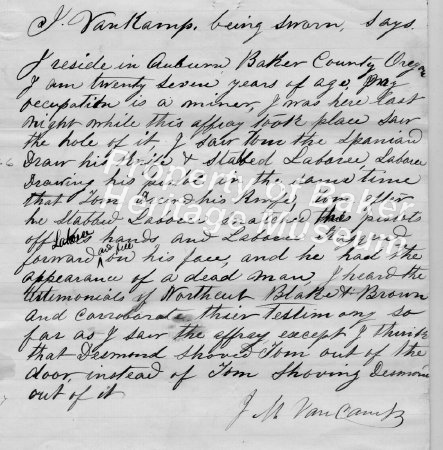 J. VanKamp. being sworn, says.
I reside in Auburn Baker County Oregon
I am twenty seven years of age, my
occupation is a miner, I was here last
night while this affray took place saw
the hole of it, I saw Tom the Spaniard
Draw his knife & stabed Laboree Laboree
Drawing his pistol at the same time
that Tom his Knife, Tom after
he stabed Laboree the pistol
off Laboree hands and Laboree
forward and fell on his face, and he had the
appearance of a dead man, I heard the
testimonials of Northcut Blake & Brown
and corroborate thier testimony so
far as I saw the affray except I think
that Desmond shoved Tom out of the
door, instead of Tom Shoving Desmond
out of it
J M VanCamp
Property of Baker
Heritage Museum